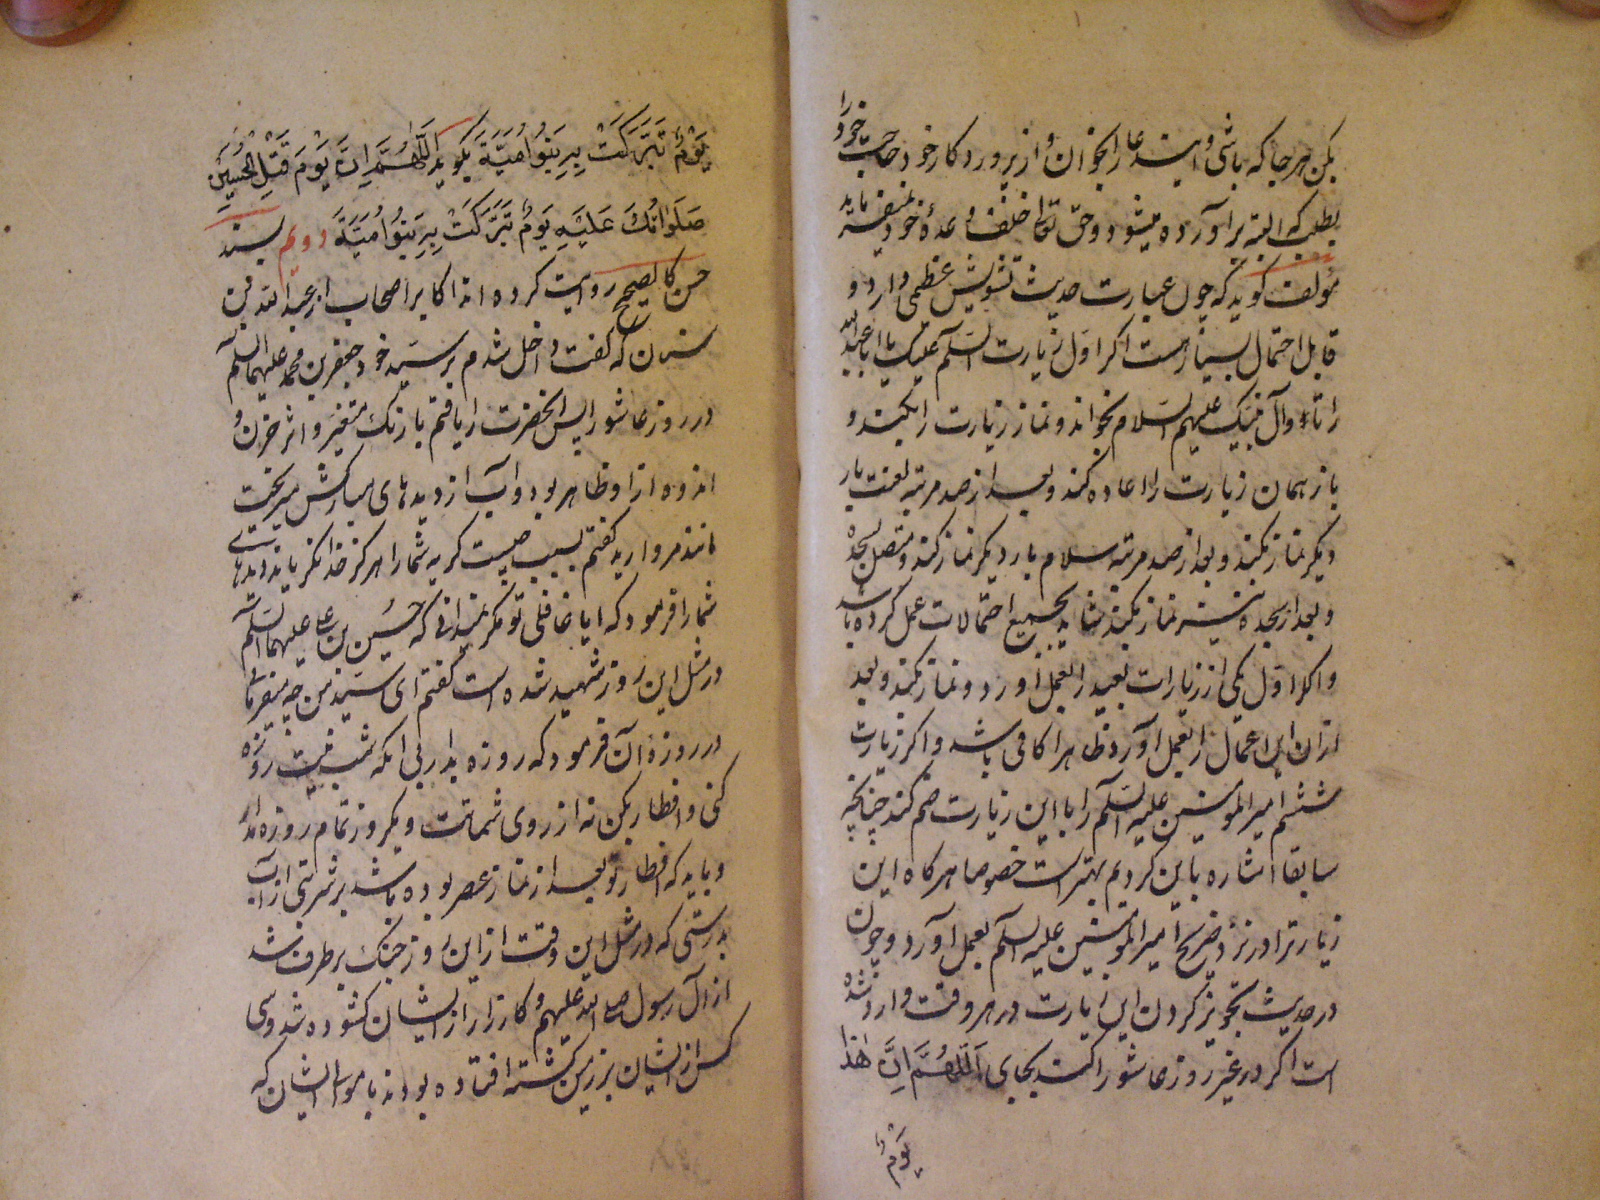 بکن هر جا که باشی و این دعا را بخوان و از پروردگار خود حاجت خود را
بطلب که البته برآورده میشود و حق تعالی خلف وعدهٔ خود نمیفرماید
مؤلف گوید که چون عبارت حدیث تشویش عظیمی دارد و
قابل احتمال بسیار است اگر اول زیارت السلم علیک یا ابا عبدالله
را تا و آل نبیک علیهم السلام بخواند و نماز زیارت را بکند و
باز همان زیارت را اعاده کند و بعد از صد مرتبه لعنت بار
دیگر نماز بکند و بعد از صد مرتبه سلام بار دیگر نماز کند و متصل بسجده
و بعد از سجده نیز نماز بکند شاید بجمیع احتمالات عمل کرده باشد
و اگر اول یکی از زیارات بعید را بعمل آورد و نماز بکند و بعد
از ان این اعمال را بعمل آورد ظاهرا کافی باشد و اگر زیارت
ششم امیر المومنین علیه السلم را با این زیارت ضم کند چنانچه
سابقا اشاره باین کردیم بهتر است خصوصا هرگاه این
زیارترا در نزد ضریح امیر المومنین علیه السلم بعمل آورد و چون
در حدیث تجویز کردن این زیارت در هر وقت وارد شده
است اگر در غیر روز عاشورا کند بجای اَللّهُمَّ اِنَّ هٰذا
یَوْمٌ
یَوْمٌ تَبَرَّکَتْ بِهِ بَنُو اُمَیَّةَ بگوید اَللّهُمَّ اِنَّ یَوْمَ قَتْلِ الْحُسَیْنِ
صَلَوٰاتُكَ عَلَیْهِ یَوْمٌ تَبَرَّکَتْ بِهِ بَنُو اُمَیَّةَ دویم بسند
حسن کالصحیح روایت کرده اند اکابر اصحاب از عبدالله بن
سنان که گفت داخل شدم بر سید خود جعفر بن محمد علیهما السلم
در روز عاشورا پس آنحضرت را یافتم با رنگ متغیر و اثر حزن و
اندوه از او ظاهر بود و آب از دیدهای مبارکش میریخت
مانند مروارید گفتم بسبب چیست گریه شما را هرگز خدا نگریاند دیدهای
شما را فرمود که ایا غافلی تو مگر نمیدانی که حُسین بن علی علیهما السلم
در مثل این روز شهید شده است گفتم ای سید من چه میفرمائی
در روزهٔ آن فرمود که روزه بدار بی انکه شب نیت روزه
کنی و افطار بکن نه از روی شماتت و یکروز تمام روزه مدار
و باید که افطار تو بعد از نماز عصر بوده باشد بر شربتی از آب
بدرستی که در مثل این وقت از این روز جنگ بر طرف شد
از آل رسول صلی الله علیهم و کارزار از ایشان گشوده شد و سی
کس از ایشان بر زمین کشته افتاده بودند با موالی ایشان که